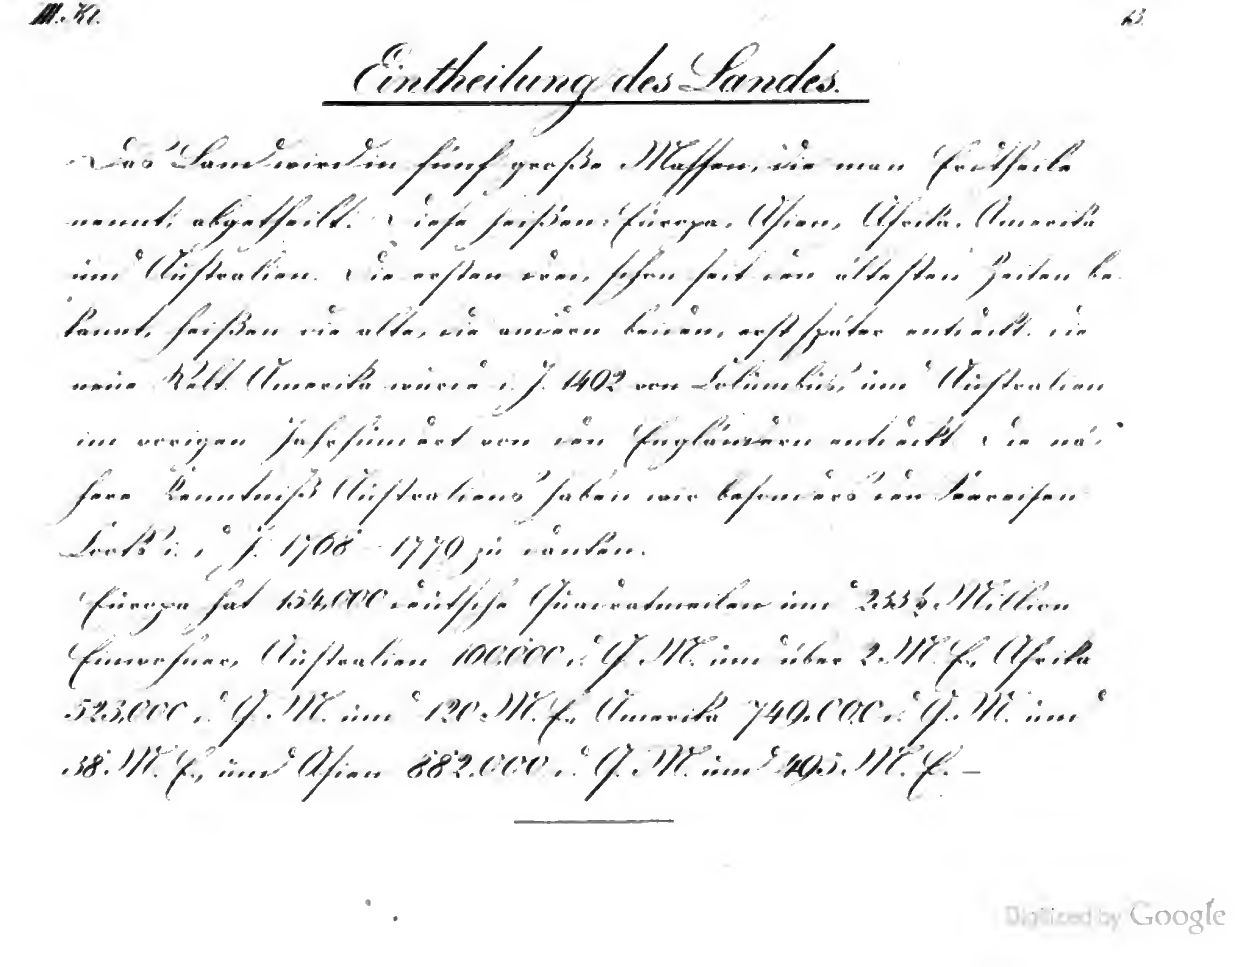 III. Kl. 13.
Eintheilung des Landes.
Das Land wird in fünf große Massen, die man Erdtheile
nennt, abgetheilt. Diese heißen: Europa, Asien, Afrika, Amerika
und Australien. Die ersten drei, schon seit den ältesten Zeiten be-
kannt, heißen die alte, die andern beiden, erst später entdeckt, die
neue Welt. Amerika wurde i. J. 1492 von Columbus, und Australien
im vorigen Jahrhundert von den Engländern entdeckt. Die nä-
here Kenntniß Australiens haben wir besonders den Seereisen
Cooks i. d. J. 1768 - 1779 zu danken.
Europa hat 154,000 deutsche Quadratmeilen und 233½ Million
Einwohner, Australien 160.000 d. Q. M. und über 2 M. E., Afrika
523,000 d. Q. M. und 120 M. E., Amerika 740.000 d. Q. M. und
38 M. E., und Asien 882.000 d. Q. M. und 405 M. E. –
Digitized by Google